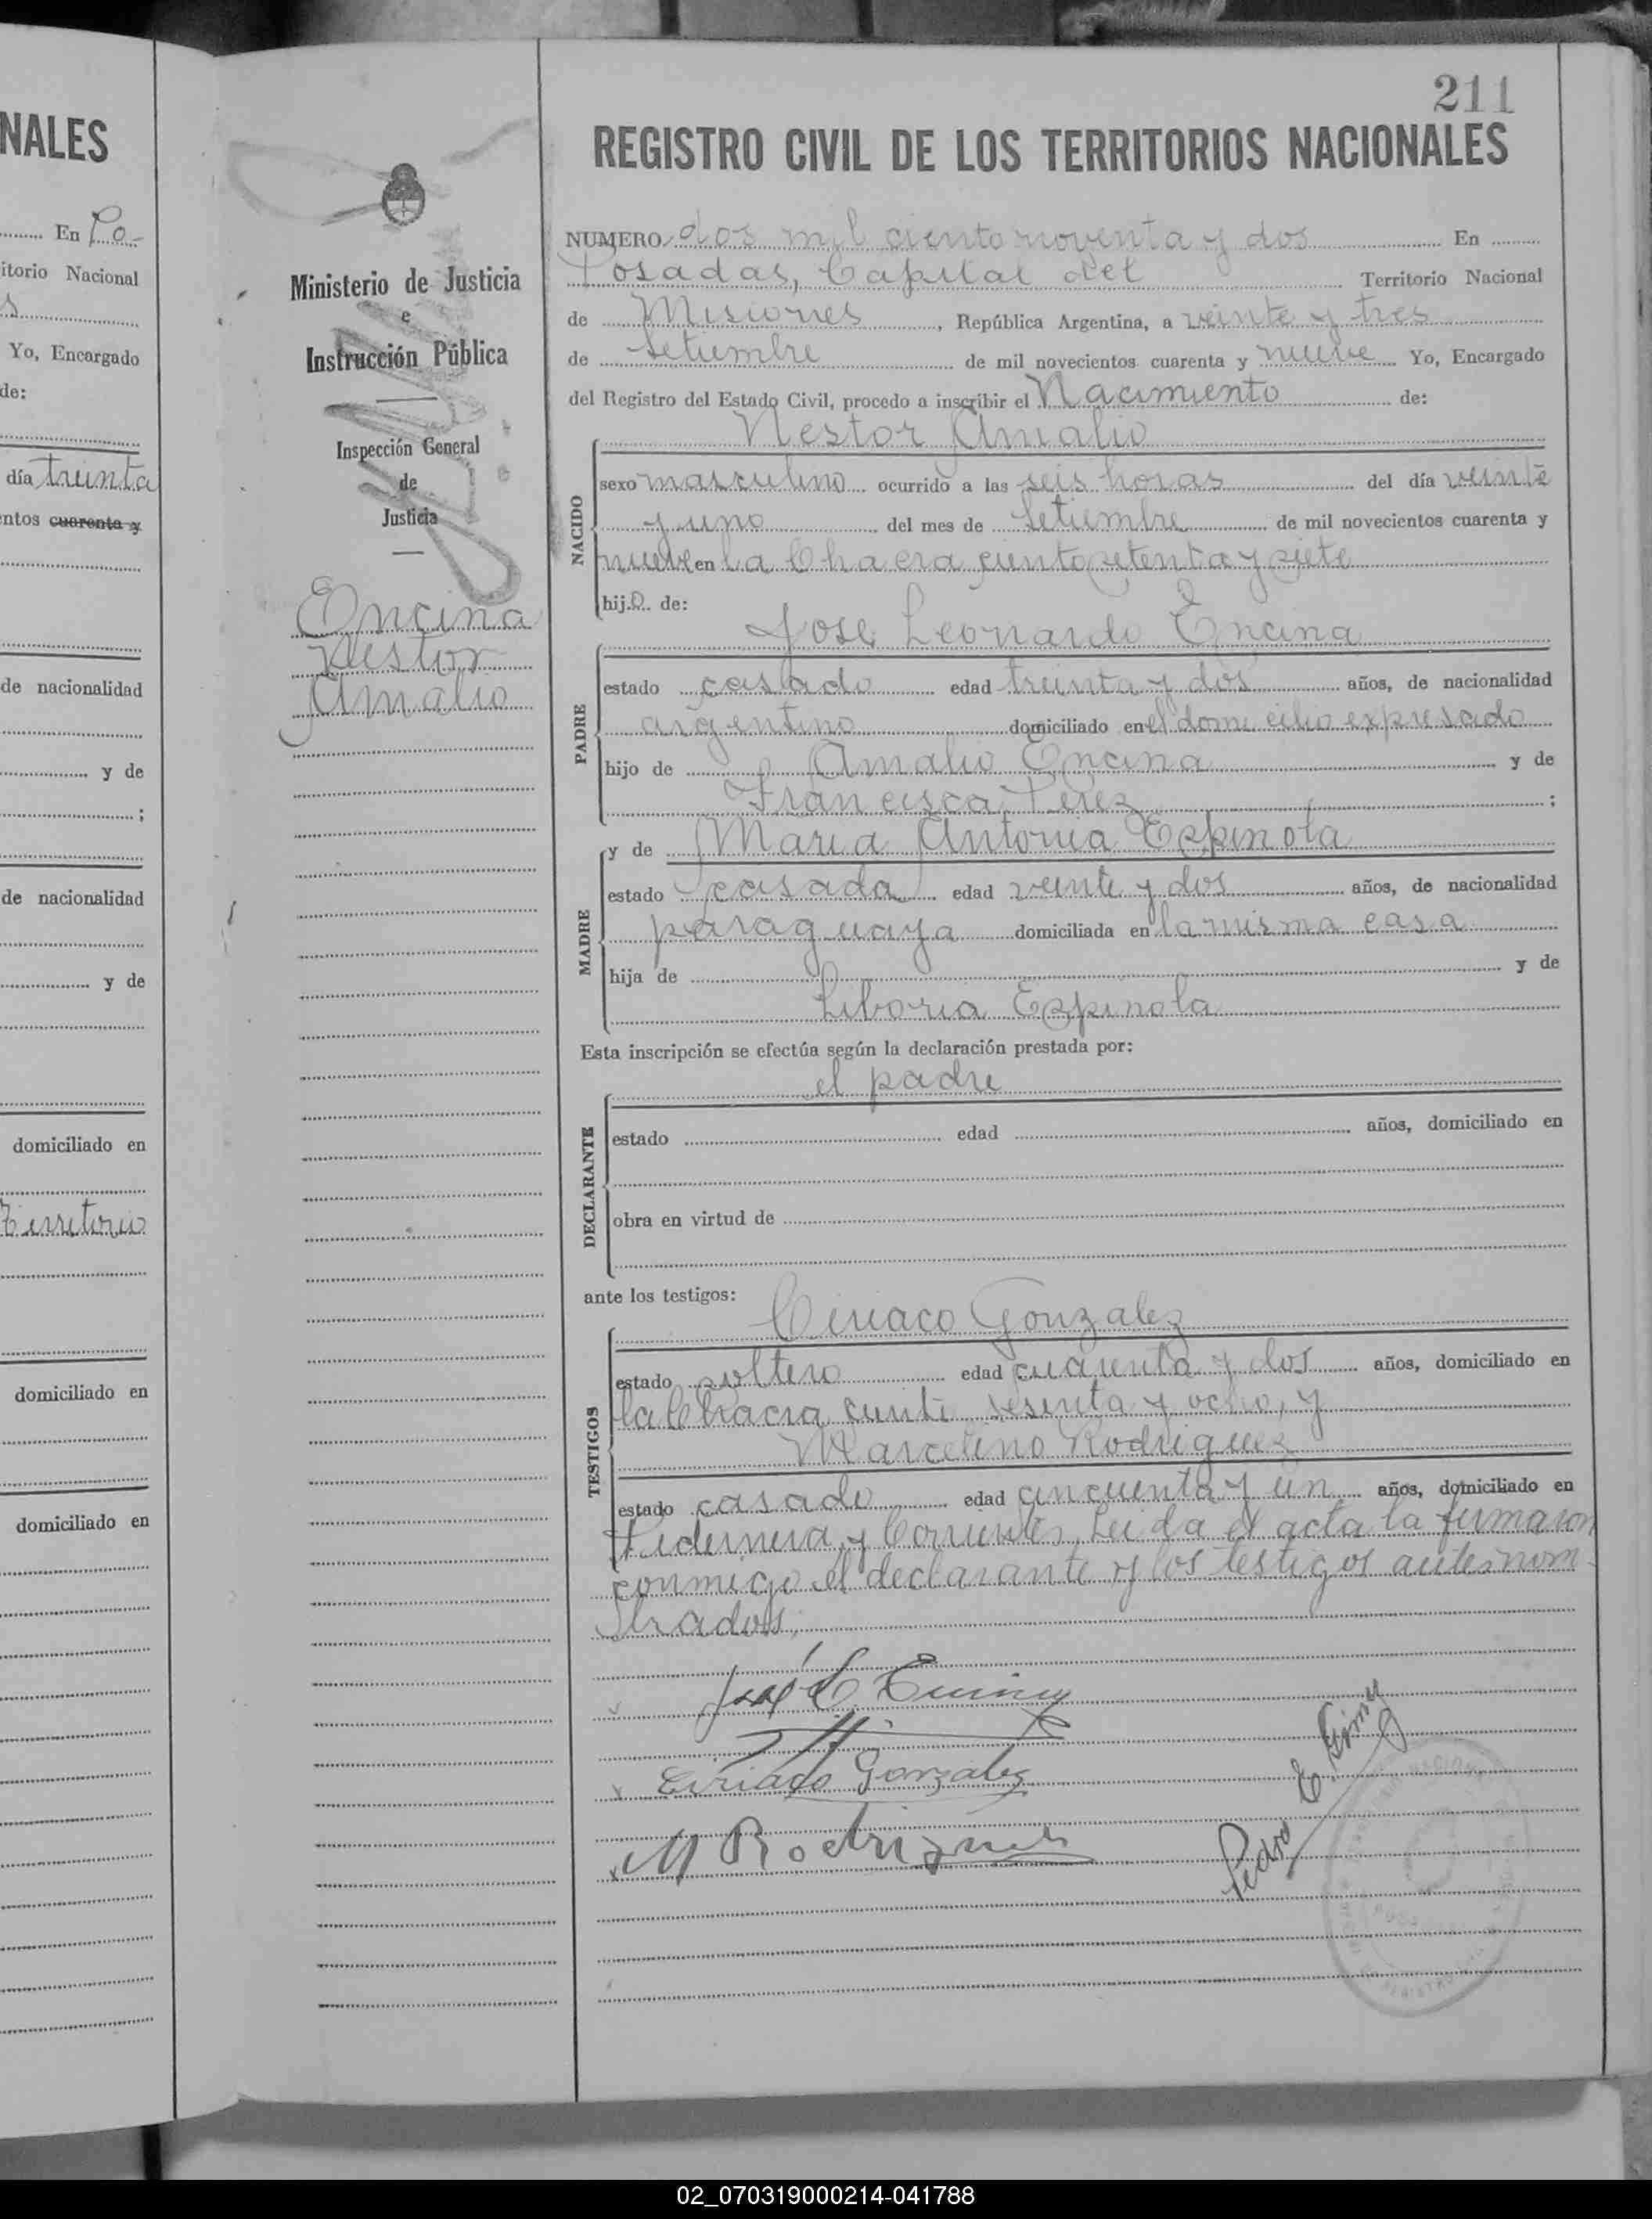 NALES
En Po-
itorio Nacional
Yo, Encargado
de:
día treinta
ntos cuarenta y
de nacionalidad
y de
;
de nacionalidad
y de
domiciliado en
Territorio
domiciliado en
domiciliado en
Ministerio de Justicia
e
Instrucción Pública
Inspección General
de
Justicia
Encina
Nestor
Amalio
211
REGISTRO CIVIL DE LOS TERRITORIOS NACIONALES
NUMERO dos mil ciento noventa y dos En
Posadas, Capital del Territorio Nacional
de Misiones, República Argentina, a veinte y tres
de Setiembre de mil novecientos cuarenta y nueve Yo, Encargado
del Registro del Estado Civil, procedo a inscribir el Nacimiento de:
Nestor Amalio
NACIDO
sexo masculino ocurrido a las seis horas del día veinte
y uno del mes de Setiembre de mil novecientos cuarenta y
nueve en la Chacra ciento setenta y siete
hijo de:
José Leonardo Encina
PADRE
estado casado edad treinta y dos años, de nacionalidad
argentino domiciliado en el domicilio expresado
hijo de Amalio Encina y de
Francisca Perez ;
MADRE
y de Maria Antonia Espinola
estado casada edad veinte y dos años, de nacionalidad
paraguaya domiciliada en la misma casa
hija de y de
Liboria Espinola
Esta inscripción se efectúa según la declaración prestada por:
el padre
DECLARANTE
estado edad años, domiciliado en
obra en virtud de
ante los testigos:
Ciriaco Gonzalez
TESTIGOS
estado soltero edad cuarenta y dos años, domiciliado en
la Chacra ciento sesenta y ocho, y
Marcelino Rodriguez
estado casado edad cincuenta y un años, domiciliado en
Pedernera y Corrientes, Leida el acta la firmaron
conmigo el declarante y los testigos antes nom-
brados,
José L. Encina
Ciriaco Gonzalez
M Rodriguez
Pedro
02_070319000214-041788